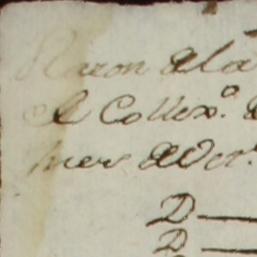 Razon de la
el Collex.º d
mes de Oct.
D
D